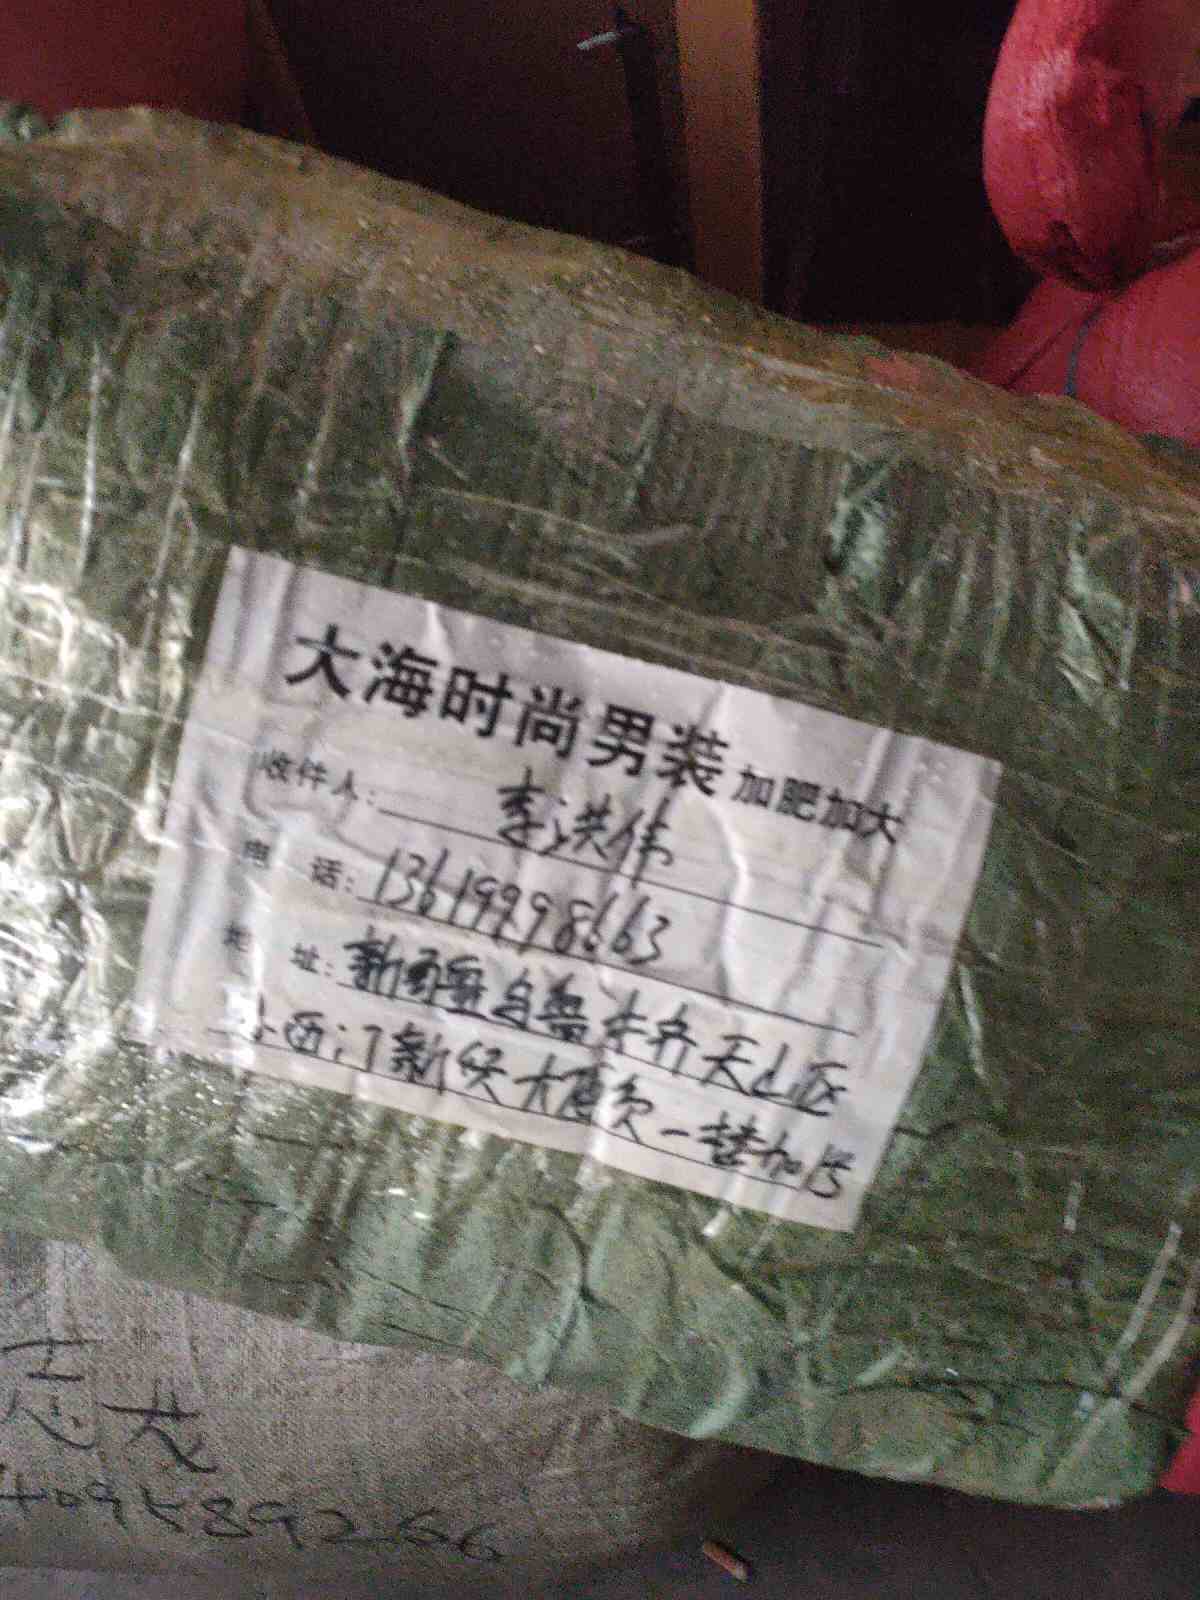 大海时尚男装 加肥加大
收件人: 李洪伟
电 话: 13619998663
地 址: 新疆乌鲁木齐天山区
小西门新
409589266